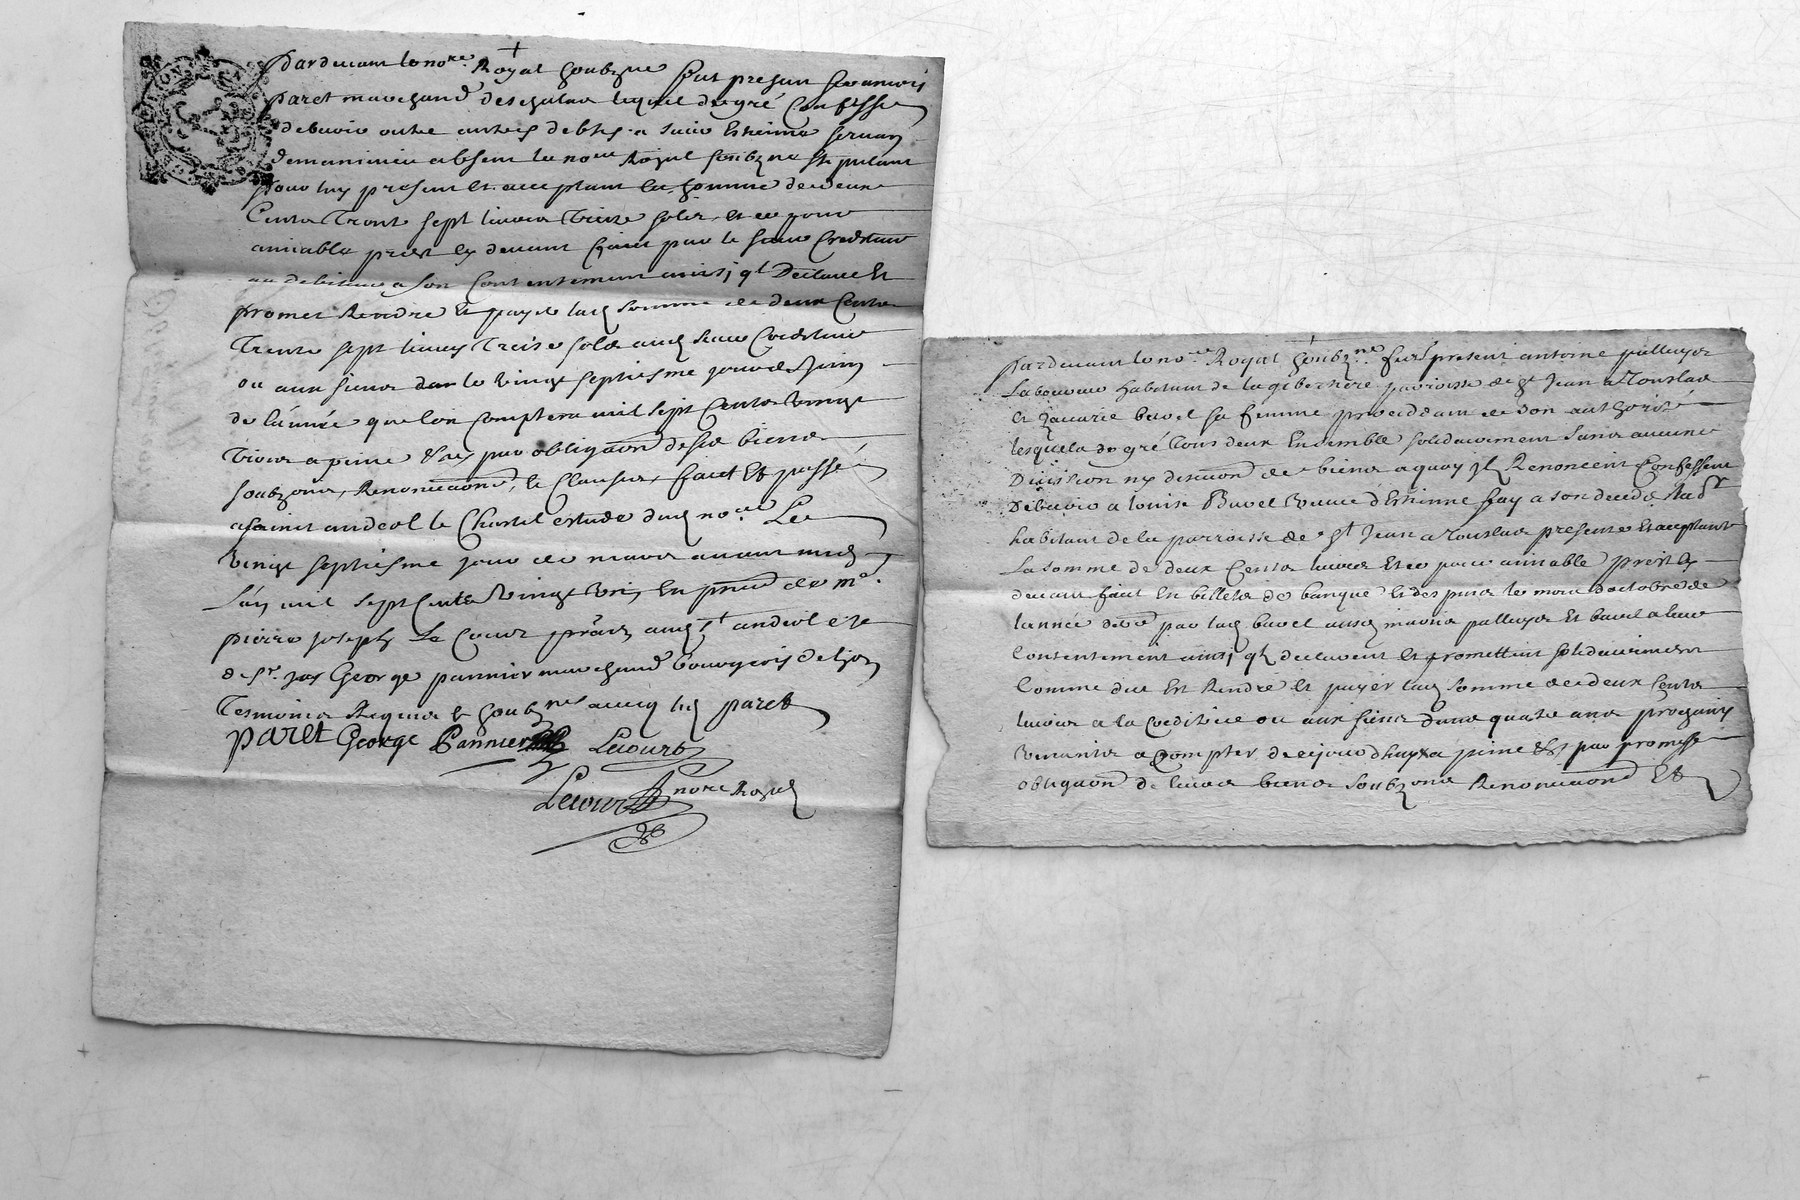 Pardevant le no.re Royal soubzne fut presan francois
paret marchand deschalas lequel de gré Confesse
debvoir outre autres debtes a sieur Estienne servan
absent le nore Royal soubzne stipulant
pour luy present et acceptant la somme de deux
Cents Trente sept livres Treize solz et ce pour
amiable prest cy devant faict par le sieur Crediteur
au debiteur a son Contentement ainsi qt Declare Et
promet Rendre et payer lad somme de deux Cents
Trente sept livres Treize solz aud sieur Crediteur
ou aux siens dans le vingt septiesme jour de Juin
de l'année que l'on Comptera mil sept Cents vingt
Trois a peine &as par obligaon de ses biens
soubzons, Renonciaons, et Clauses, faict Et passé
a saint andeol le Chastel estude dud nore Le
vingt septiesme jour de mars avant midy
l'an mil sept Cents vingt un, En pnce de me
pierre joseph Le Cour prān aud st andeol et
de sr. George pannier marchand bourgeois de lyon
Tesmoins Requis et soubznes avecq led paret
paret George Pannier Lecourt
Lecourt nore Royal
Pardevant le nore Royal soubzne furt present antoine palluyer
Laboureur habitant de la giberniere parroisse de st Jean a Touslas
Et bavel sa femme proceddant de son authorité
lesquels de gré Tous deux Ensemble solidairement sans aucune
Division ny discuon de biens a quoy jls Renoncent Confessent
Debvoir a louise Bavel veuve d'Estienne fay a son deceds
habitant de la parroisse de st Jean a Touslas presente Et acceptante
La somme de deux Cents livres Et ce pour amiable prest cy
devant faict En billets de banque et des puis le mois d'octobre de
l'année dere par lad bavel ausd mariés palluyer Et bavel a leur
Contentement ainsi ql declarent Et promettent solidairement
Comme dit Est Rendre Et payer lad somme de deux Cents
livres a la Creditrice ou aux siens dans quatre ans prochains
venants a Compter de cejourd'huy a peine &s par promesse
obligaon de leurs biens soubzons Renonciaons Et